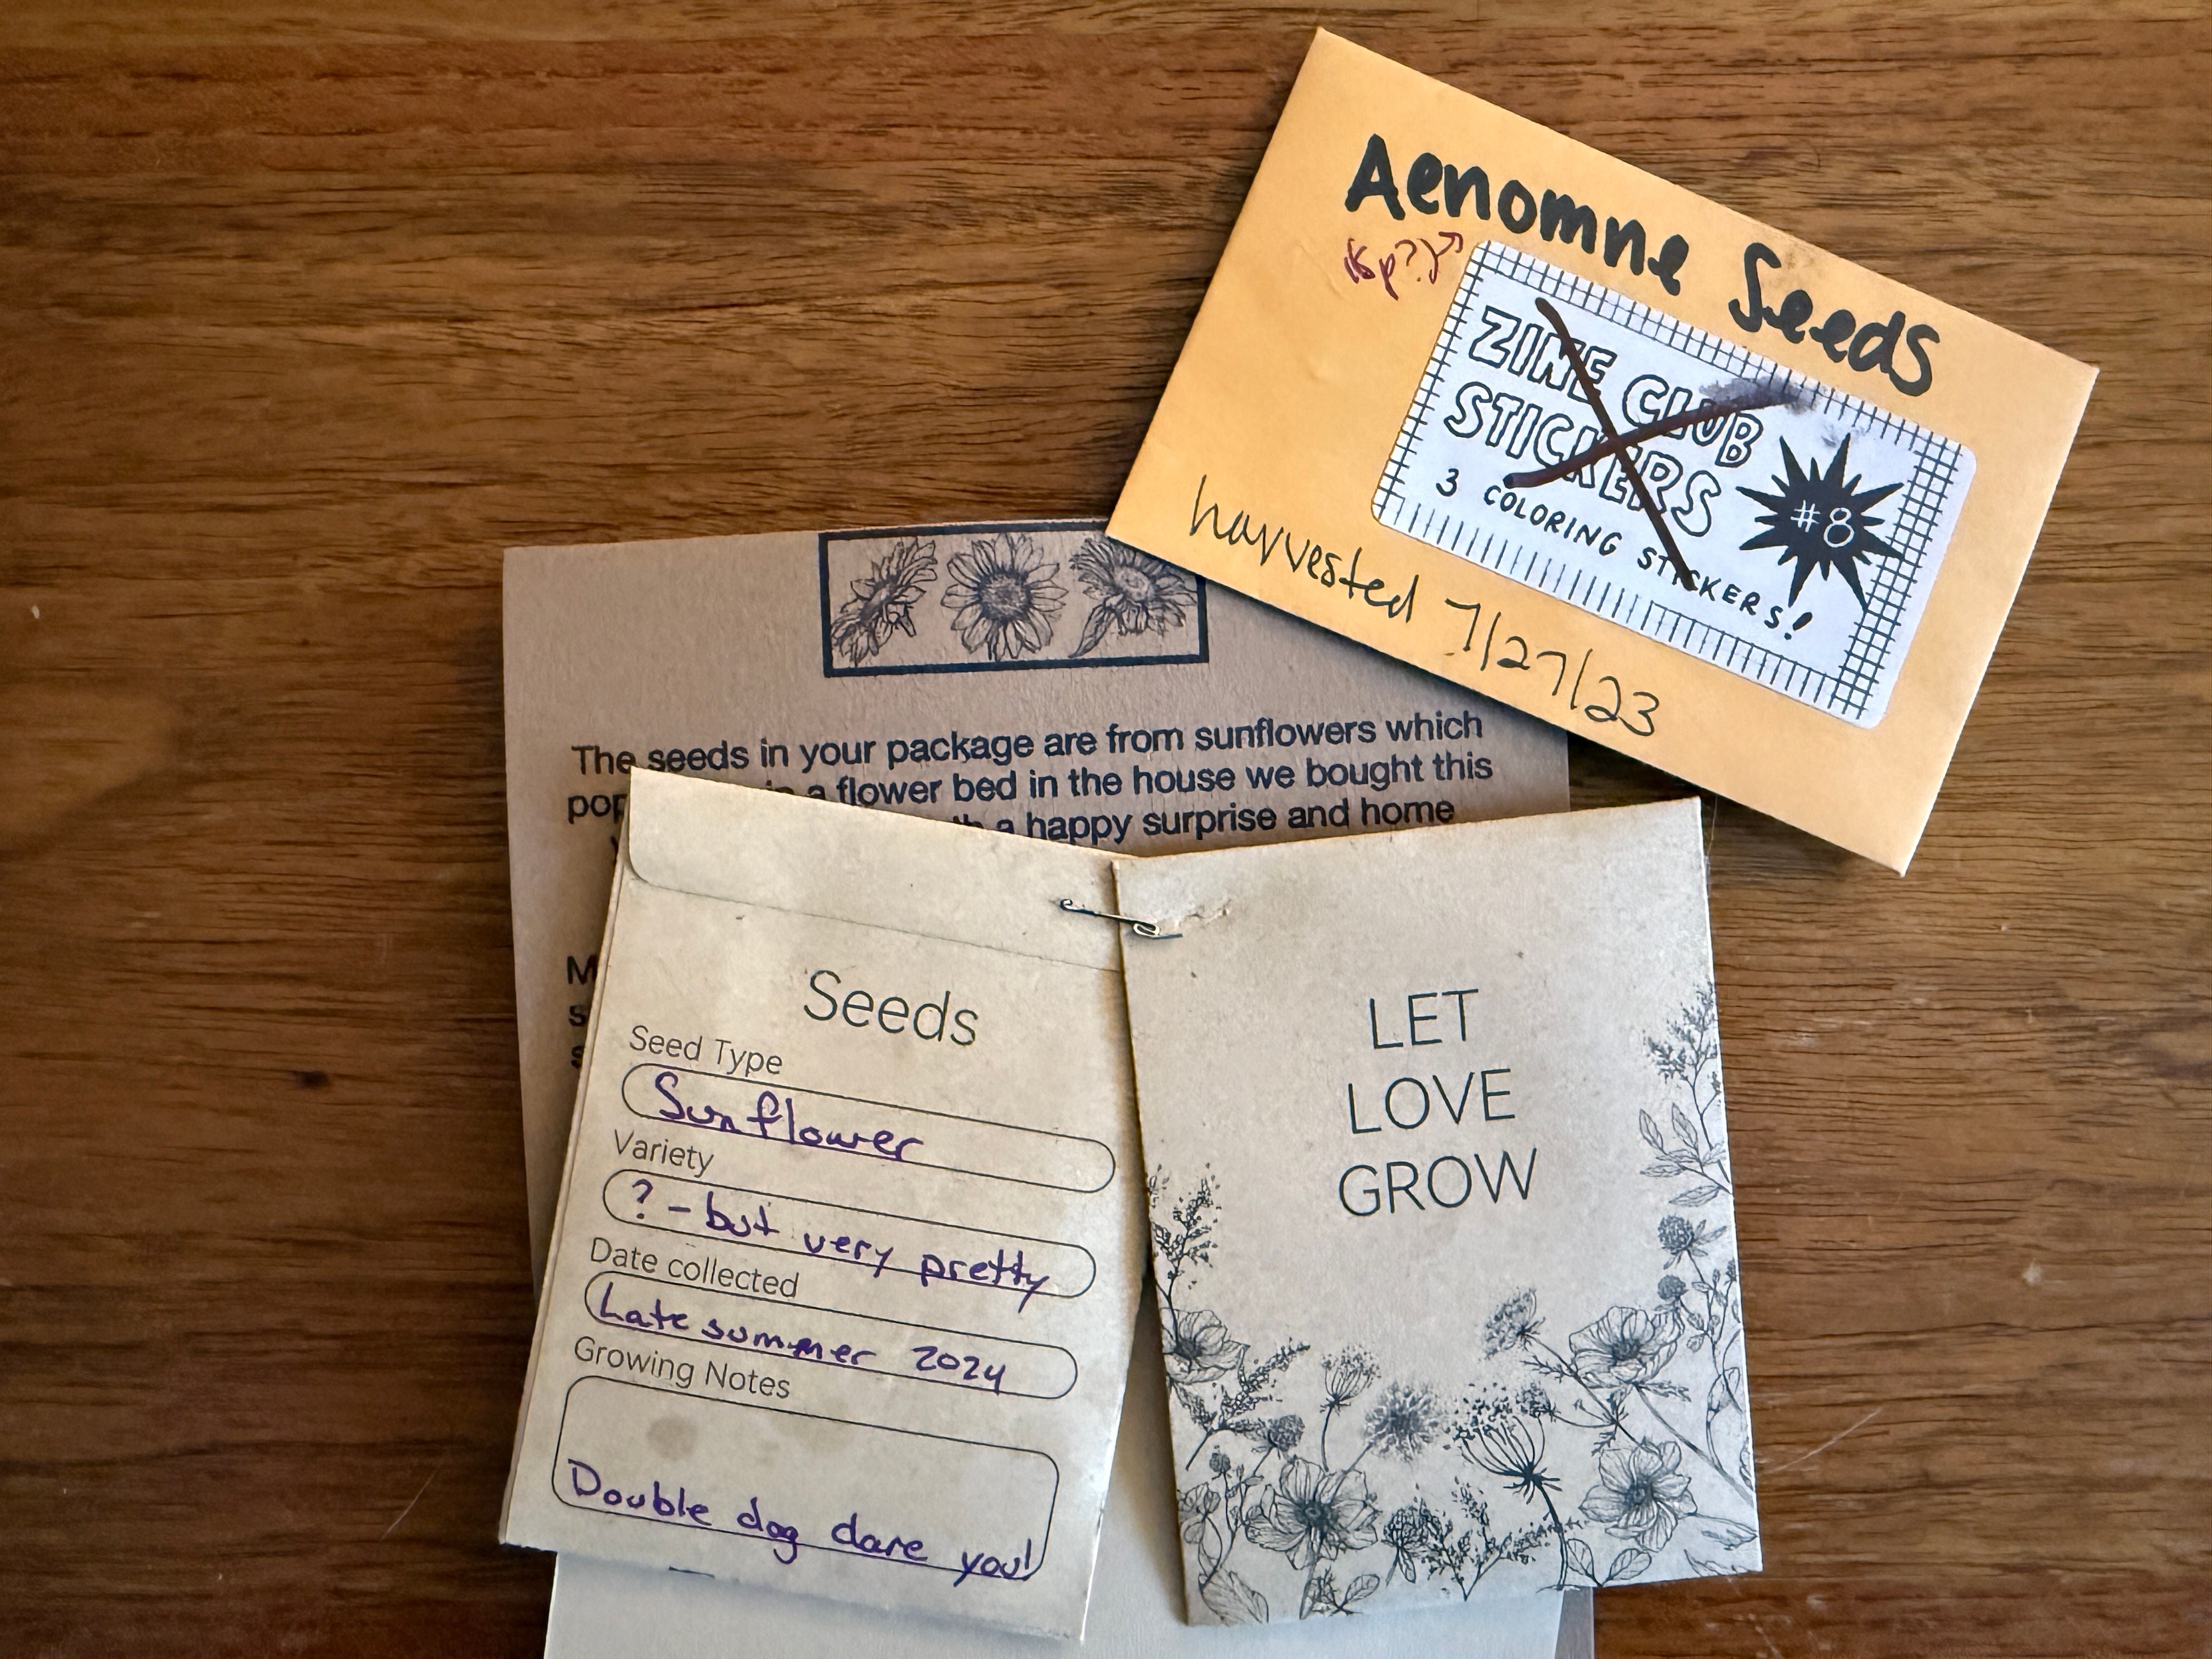 Aenomne Seeds
(sp?)
ZINE CLUB
STICKERS
3 COLORING STICKERS!
#8
harvested 7/27/23
The seeds in your package are from sunflowers which
a flower bed in the house we bought this
a happy surprise and home
Seeds
Seed Type
Sunflower
Variety
? - but very pretty
Date collected
Late summer 2024
Growing Notes
Double dog dare you!
LET
LOVE
GROW